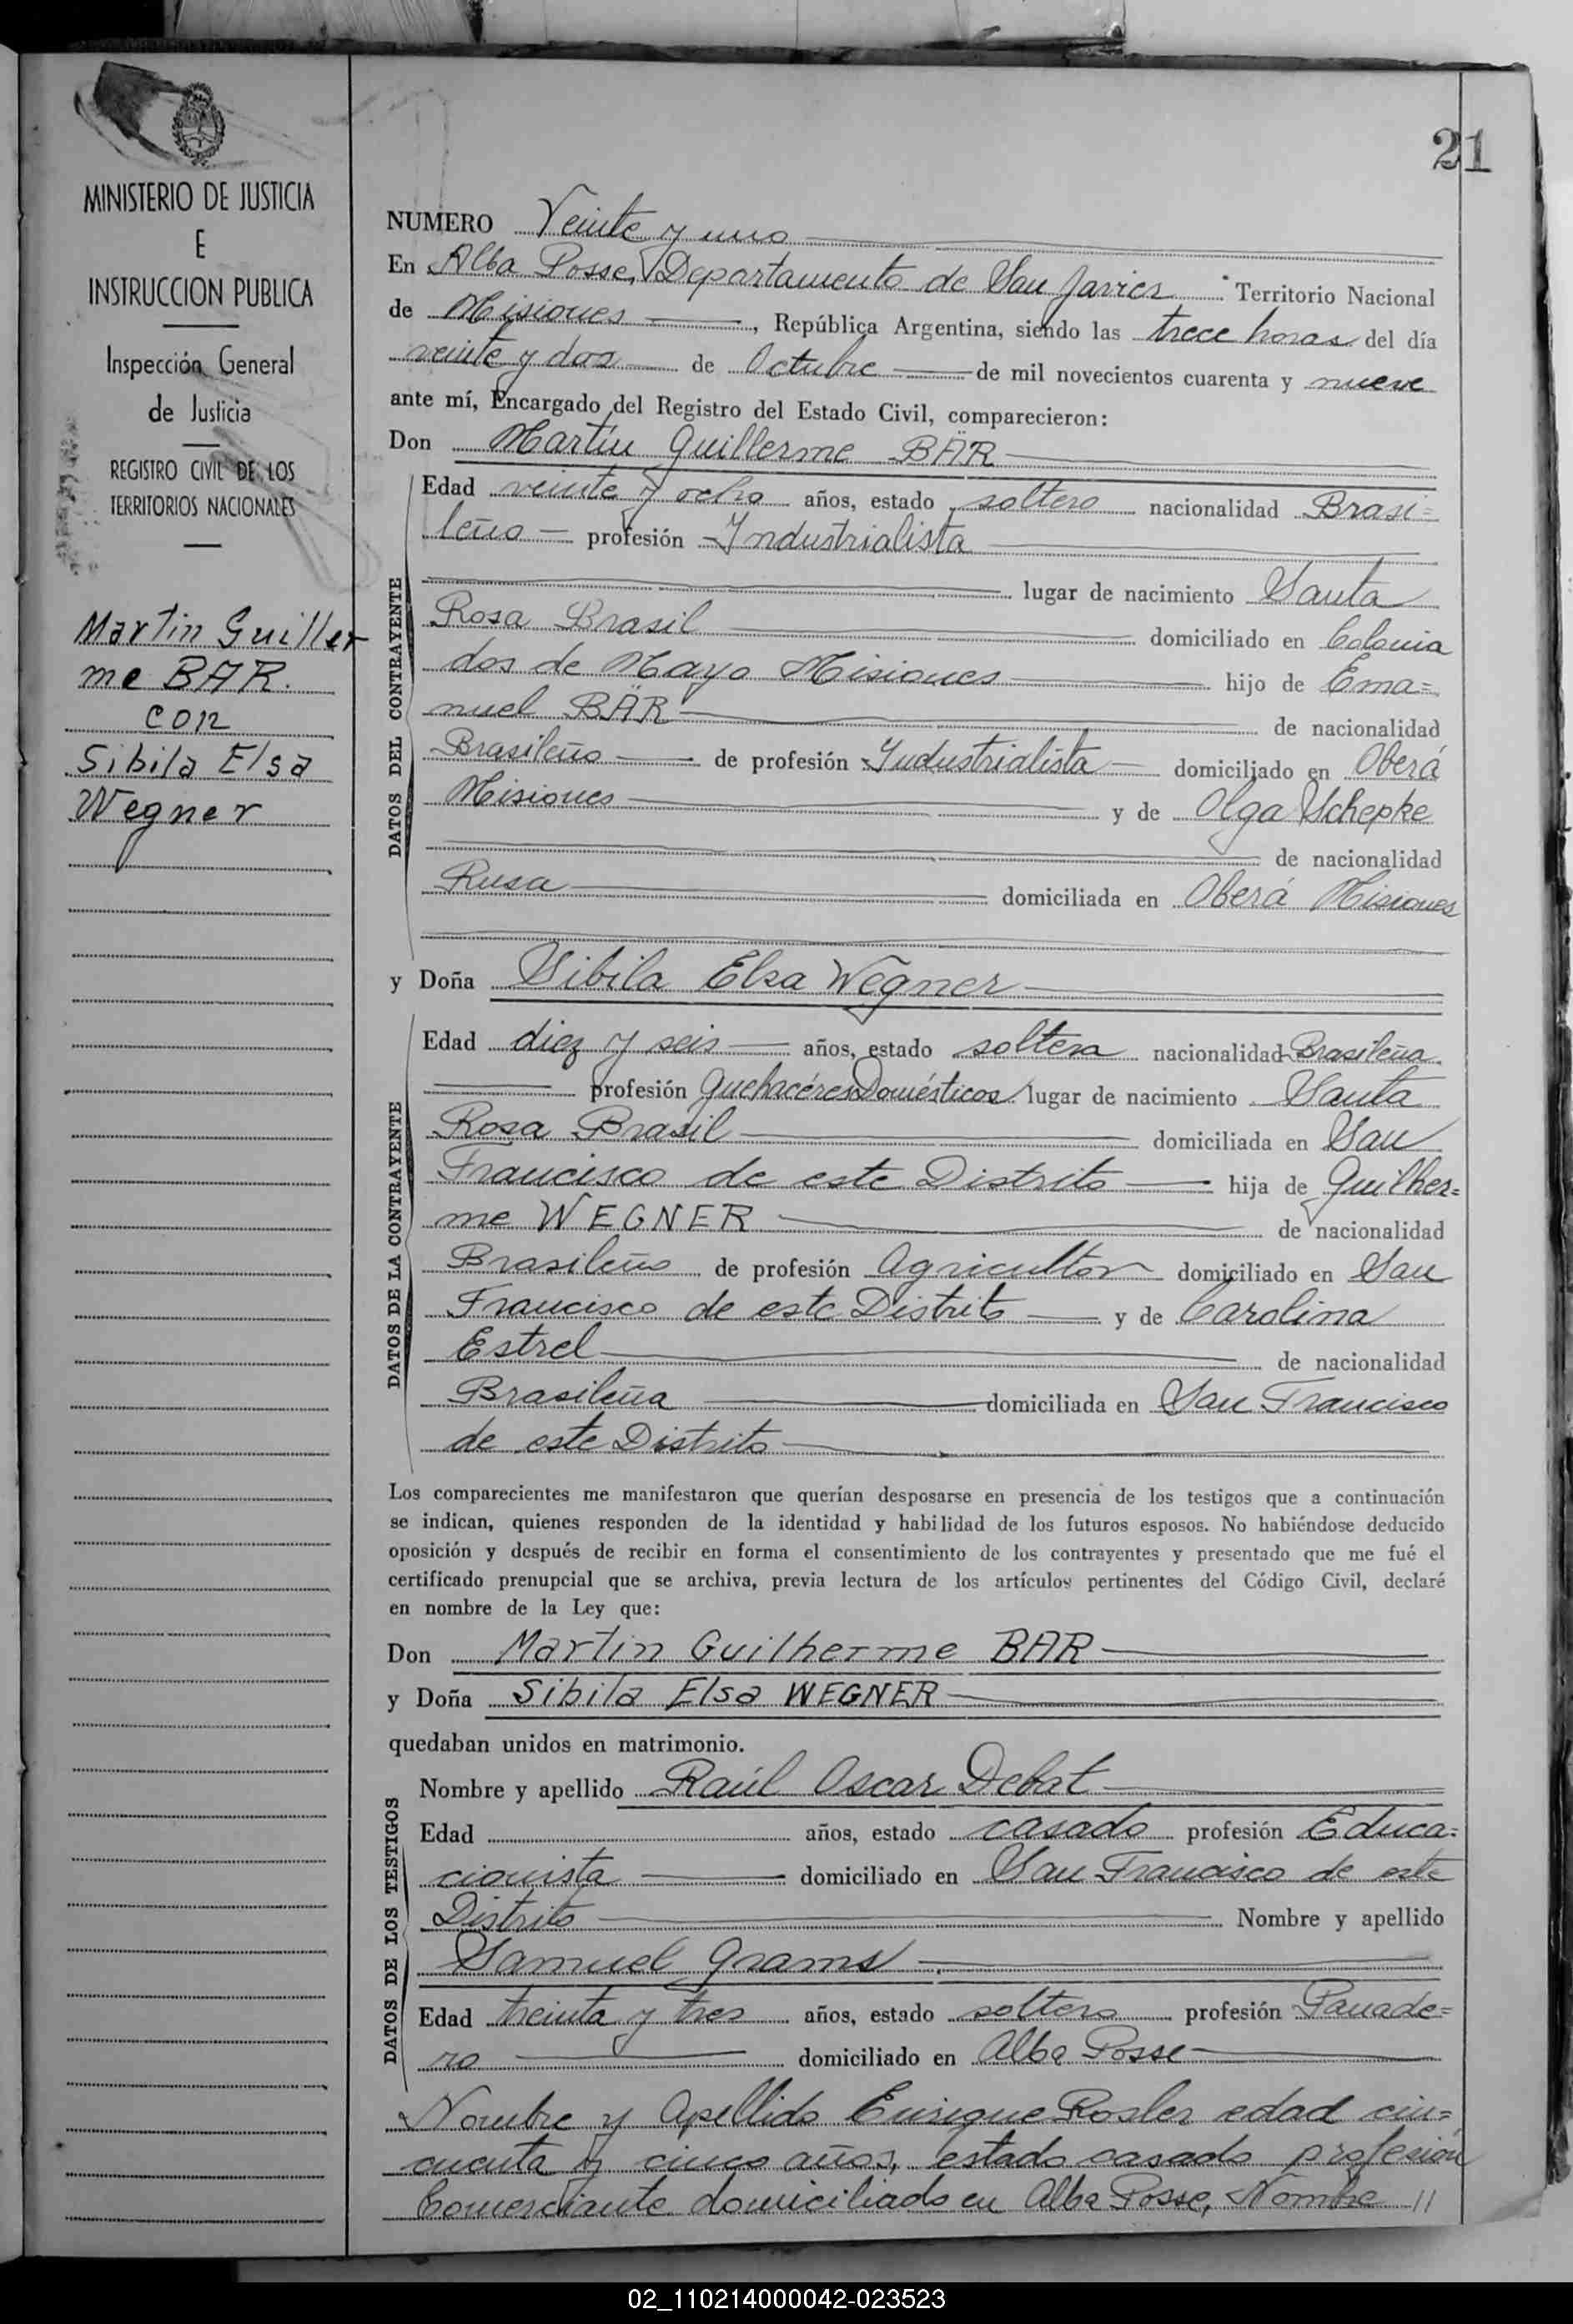 21
MINISTERIO DE JUSTICIA
E
INSTRUCCION PUBLICA
Inspección General
de Justicia
REGISTRO CIVIL DE LOS
TERRITORIOS NACIONALES
Martin Guiller
me BAR.
con
Sibila Elsa
Wegner
NUMERO Veinte y uno
En Alba Posse, Departamento de San Javier, Territorio Nacional
de Misiones, República Argentina, siendo las trece horas del día
veinte y dos de Octubre de mil novecientos cuarenta y nueve
ante mí, Encargado del Registro del Estado Civil, comparecieron:
Don Martín Guillerme BÄR
DATOS DEL CONTRAYENTE
Edad veinte y ocho años, estado soltero nacionalidad Brasi=
leño profesión Industrialista
lugar de nacimiento Santa
Rosa Brasil domiciliado en Colonia
dos de Mayo Misiones hijo de Ema=
nuel BÄR de nacionalidad
Brasileño de profesión Industrialista domiciliado en Oberá
Misiones y de Olga Schepke
de nacionalidad
Rusa domiciliada en Oberá Misiones
y Doña Sibila Elsa Wegner
DATOS DE LA CONTRAYENTE
Edad diez y seis años, estado soltera nacionalidad Brasileña
profesión Quehacéres Domésticos lugar de nacimiento Santa
Rosa Brasil domiciliada en San
Francisco de este Distrito hija de Guilher=
me WEGNER de nacionalidad
Brasileño de profesión Agricultor domiciliado en San
Francisco de este Distrito y de Carolina
Estrel de nacionalidad
Brasileña domiciliada en San Francisco
de este Distrito
Los comparecientes me manifestaron que querían desposarse en presencia de los testigos que a continuación
se indican, quienes responden de la identidad y habilidad de los futuros esposos. No habiéndose deducido
oposición y después de recibir en forma el consentimiento de los contrayentes y presentado que me fué el
certificado prenupcial que se archiva, previa lectura de los artículos pertinentes del Código Civil, declaré
en nombre de la Ley que:
Don Martin Guilherme BAR
y Doña Sibila Elsa WEGNER
quedaban unidos en matrimonio.
DATOS DE LOS TESTIGOS
Nombre y apellido Raúl Oscar Debat
Edad años, estado casado profesión Educa=
cionista domiciliado en San Francisco de este
Distrito Nombre y apellido
Samuel Grams
Edad treinta y tres años, estado soltero profesión Panade=
ro domiciliado en Alba Posse
Nombre y Apellido Enrique Rosler edad cin=
cuenta y cinco años, estado casado profesión
Comerciante domiciliado en Alba Posse, Nombre //
02_110214000042-023523